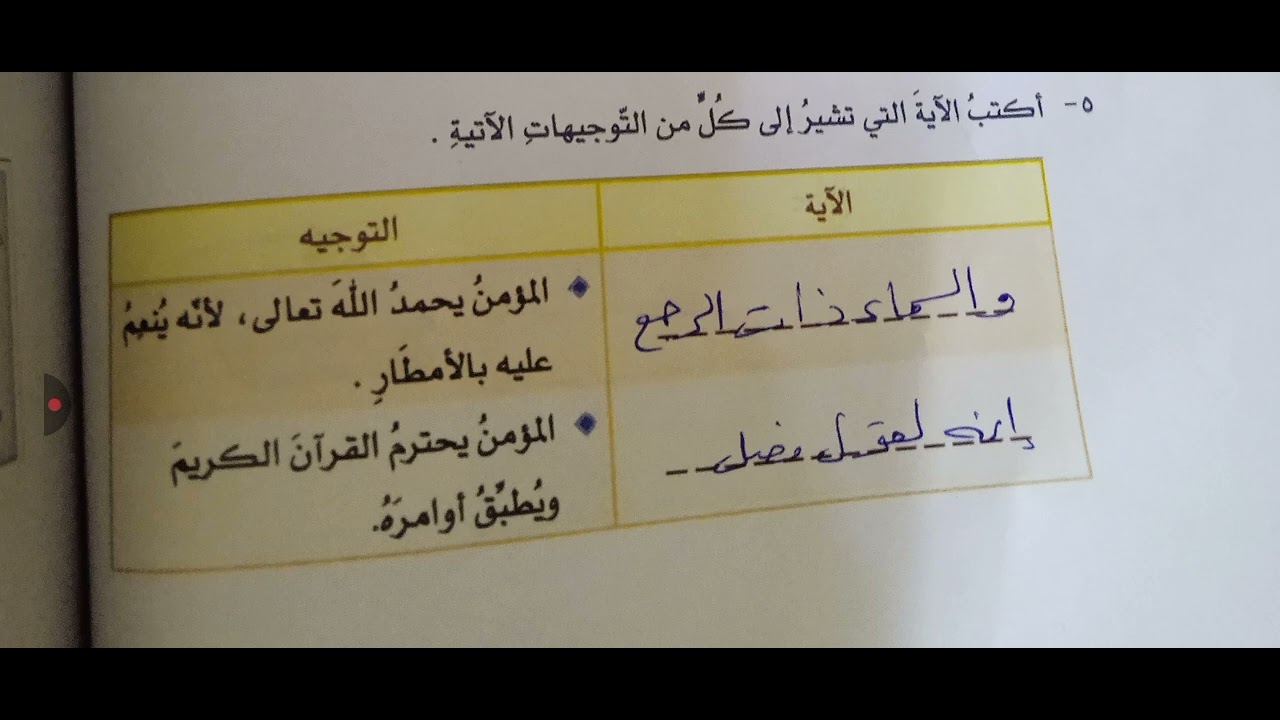 ٥- أكتبُ الآيةَ التي تشيرُ إلى كُلٍّ من التّوجيهاتِ الآتيةِ .
الآية
التوجيه
والسماء ذات الرجع
المؤمنُ يحمدُ اللهَ تعالى، لأنّه يُنعِمُ
عليه بالأمطَارِ .
إنه لقول فصل
المؤمنُ يحترمُ القرآنَ الكريمَ
ويُطبِّقُ أوامرَهُ.